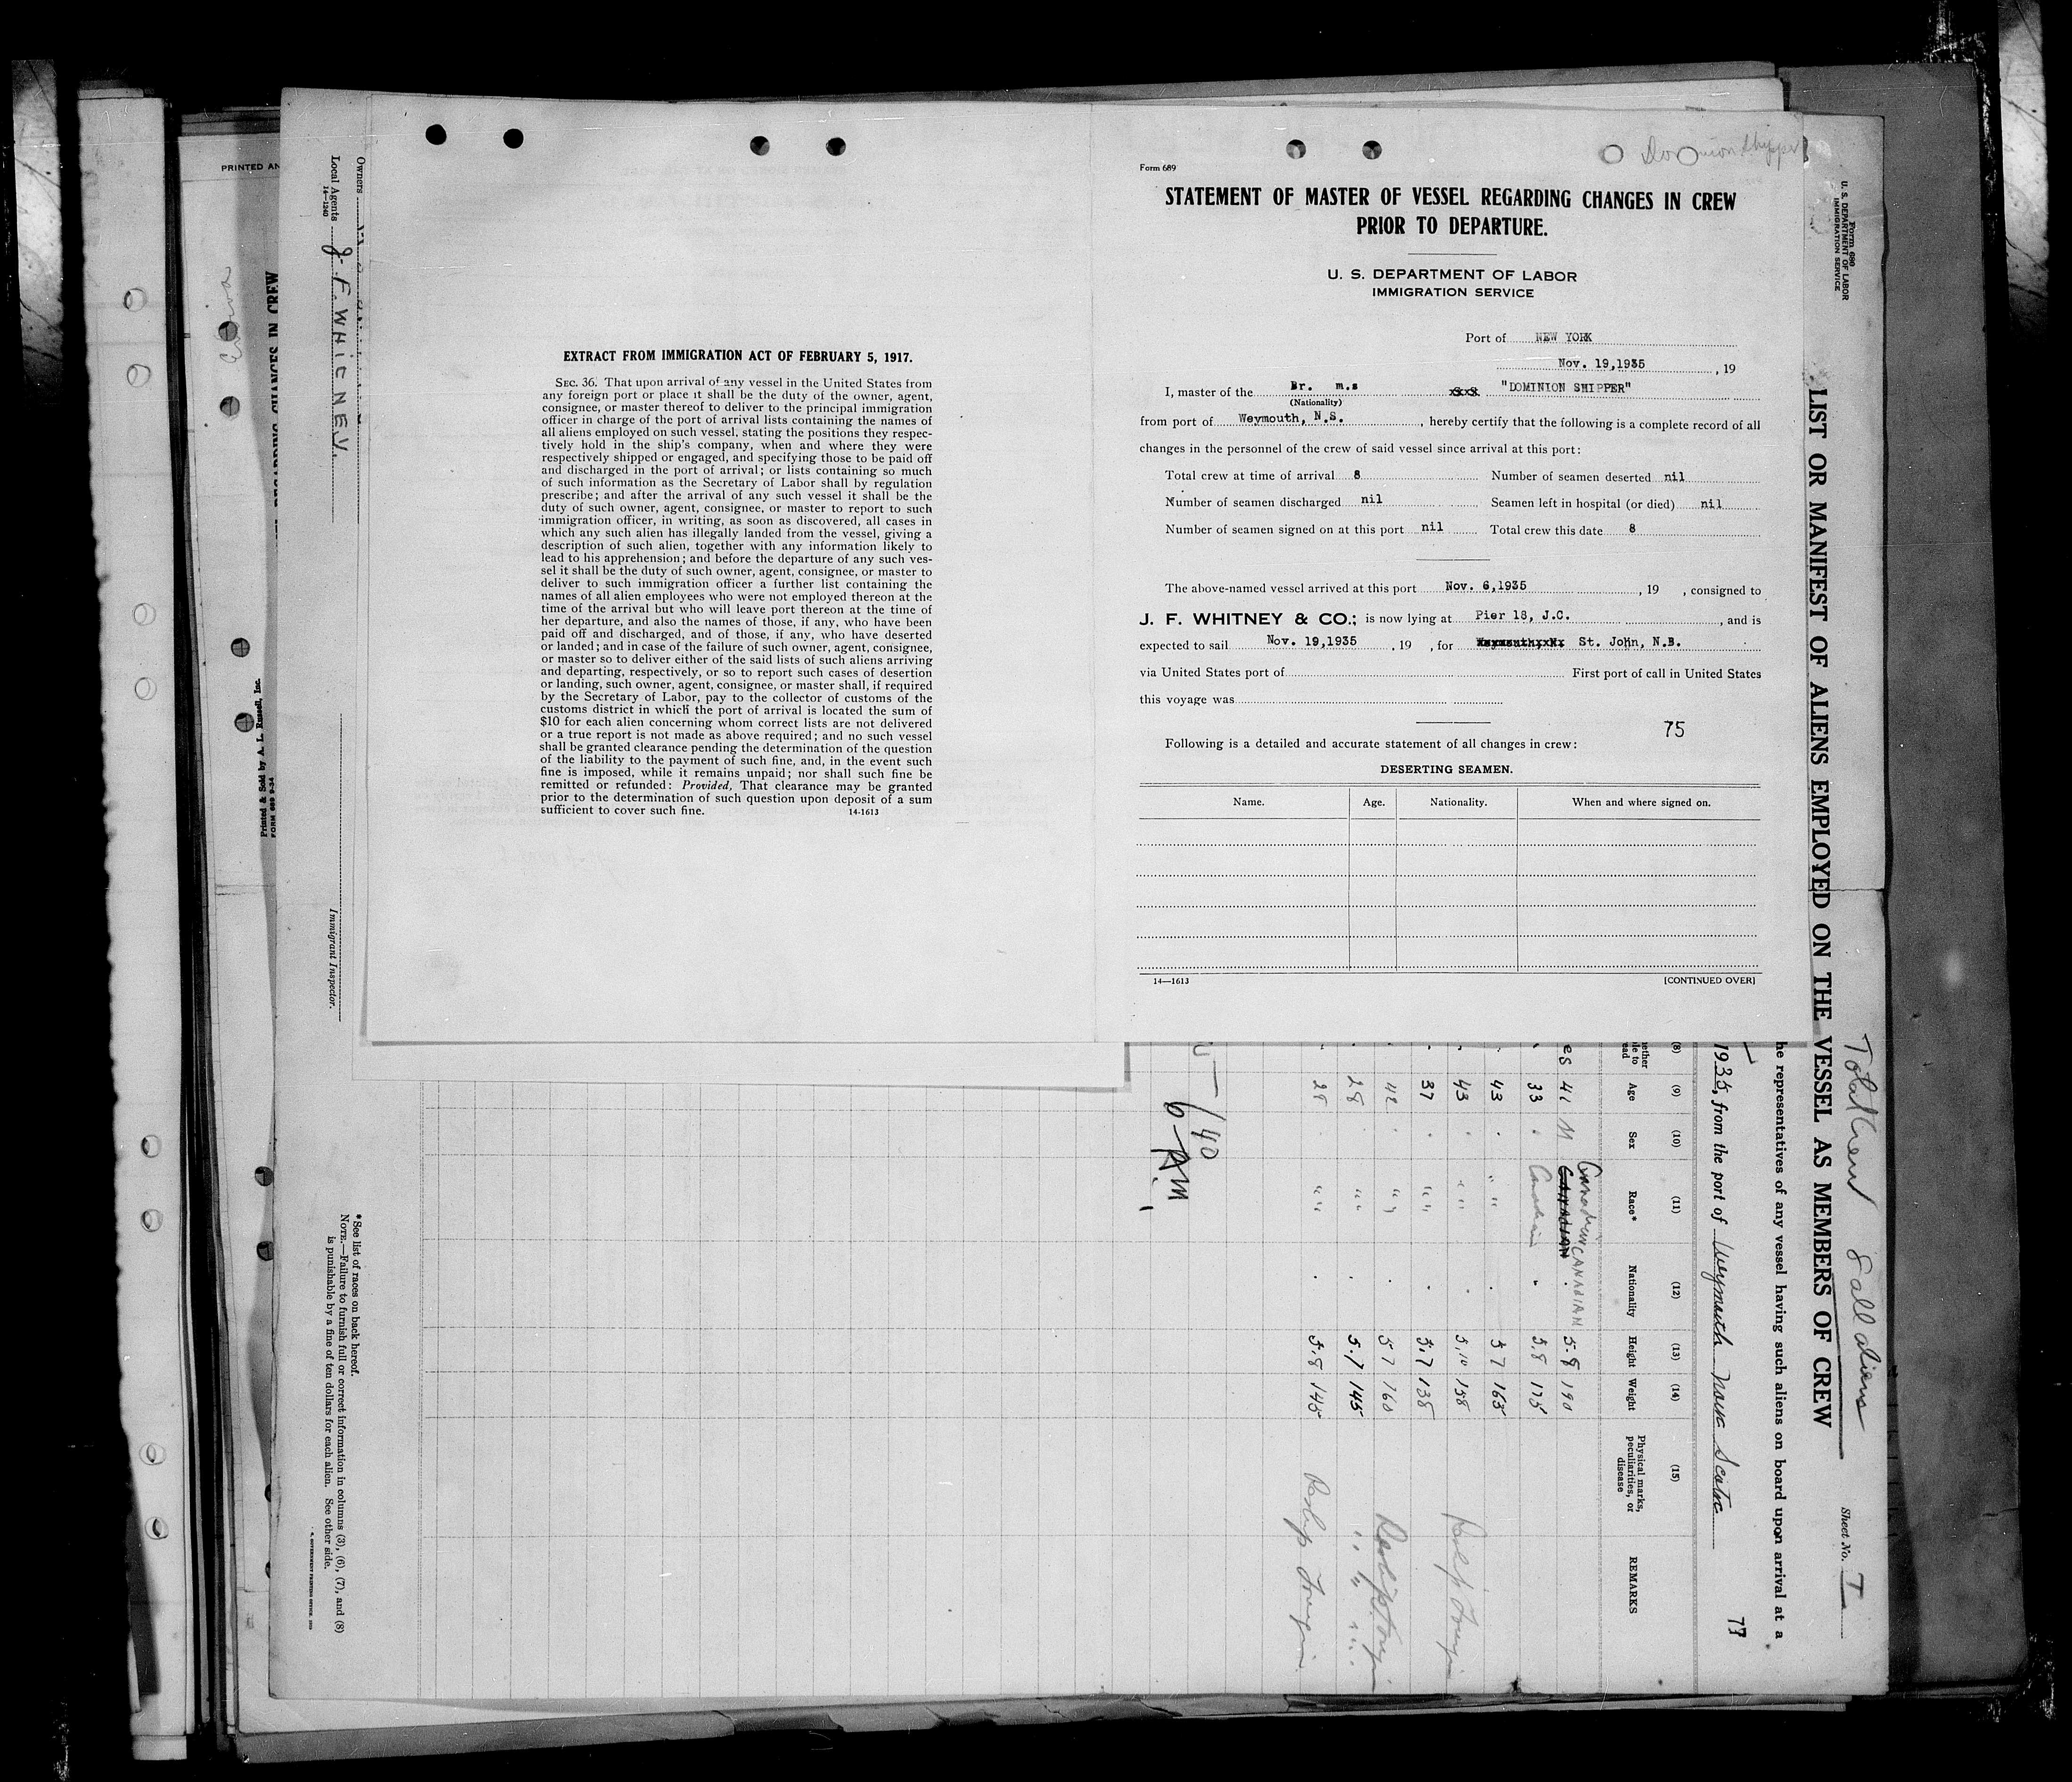 PRINTED AN
CHANGES IN CREW
Printed & Sold by A. L. Russell, Inc.
FORM 689 9-34
Owners
Local Agents J. F. WHITNEY.
14-1240
Immigrant Inspector.
EXTRACT FROM IMMIGRATION ACT OF FEBRUARY 5, 1917.
SEC. 36. That upon arrival of any vessel in the United States from
any foreign port or place it shall be the duty of the owner, agent,
consignee, or master thereof to deliver to the principal immigration
officer in charge of the port of arrival lists containing the names of
all aliens employed on such vessel, stating the positions they respec-
tively hold in the ship's company, when and where they were
respectively shipped or engaged, and specifying those to be paid off
and discharged in the port of arrival; or lists containing so much
of such information as the Secretary of Labor shall by regulation
prescribe; and after the arrival of any such vessel it shall be the
duty of such owner, agent, consignee, or master to report to such
immigration officer, in writing, as soon as discovered, all cases in
which any such alien has illegally landed from the vessel, giving a
description of such alien, together with any information likely to
lead to his apprehension; and before the departure of any such ves-
sel it shall be the duty of such owner, agent, consignee, or master to
deliver to such immigration officer a further list containing the
names of all alien employees who were not employed thereon at the
time of the arrival but who will leave port thereon at the time of
her departure, and also the names of those, if any, who have been
paid off and discharged, and of those, if any, who have deserted
or landed; and in case of the failure of such owner, agent, consignee,
or master so to deliver either of the said lists of such aliens arriving
and departing, respectively, or so to report such cases of desertion
or landing, such owner, agent, consignee, or master shall, if required
by the Secretary of Labor, pay to the collector of customs of the
customs district in which the port of arrival is located the sum of
$10 for each alien concerning whom correct lists are not delivered
or a true report is not made as above required; and no such vessel
shall be granted clearance pending the determination of the question
of the liability to the payment of such fine, and, in the event such
fine is imposed, while it remains unpaid; nor shall such fine be
remitted or refunded: Provided, That clearance may be granted
prior to the determination of such question upon deposit of a sum
sufficient to cover such fine. 14-1613
Dominion Shipper
Form 689
STATEMENT OF MASTER OF VESSEL REGARDING CHANGES IN CREW
PRIOR TO DEPARTURE.
U. S. DEPARTMENT OF LABOR
IMMIGRATION SERVICE
Port of NEW YORK
Nov. 19,1935, 19
I, master of the Br. m.s "DOMINION SHIPPER"
(Nationality)
from port of Weymouth, N.S., hereby certify that the following is a complete record of all
changes in the personnel of the crew of said vessel since arrival at this port:
Total crew at time of arrival 8 Number of seamen deserted nil
Number of seamen discharged nil Seamen left in hospital (or died) nil
Number of seamen signed on at this port nil Total crew this date 8
The above-named vessel arrived at this port Nov. 6,1935, 19 , consigned to
J. F. WHITNEY & CO.; is now lying at Pier 18, J.C. , and is
expected to sail Nov. 19,1935, 19 , for St. John, N.B.
via United States port of First port of call in United States
this voyage was
75
Following is a detailed and accurate statement of all changes in crew:
DESERTING SEAMEN.
Name. Age. Nationality. When and where signed on.
14—1613 [CONTINUED OVER]
Form 680
U. S. DEPARTMENT OF LABOR
IMMIGRATION SERVICE
Total Crew 8 all aliens
Sheet No. 1
LIST OR MANIFEST OF ALIENS EMPLOYED ON THE VESSEL AS MEMBERS OF CREW
he representatives of any vessel having such aliens on board upon arrival at a
1935, from the port of Weymouth Nova Scotia
77
(8) (9) (10) (11) (12) (13) (14) (15)
Age Sex Race* Nationality Height Weight Physical marks, peculiarities, or disease REMARKS
es 41 M Canadian CANADIAN 5.8 190
33 " Canadian " 5.8 175
43 " " " 5 7 165
43 " " " 5.10 158
37 " " " 5.7 138
42 " " " 5 7 160
28 " " " 5.7 145
28 " " " 5.8 145
6 AM
*See list of races on back hereof.
NOTE.—Failure to furnish full or correct information in columns (3), (6), (7), and (8)
is punishable by a fine of ten dollars for each alien. See other side.